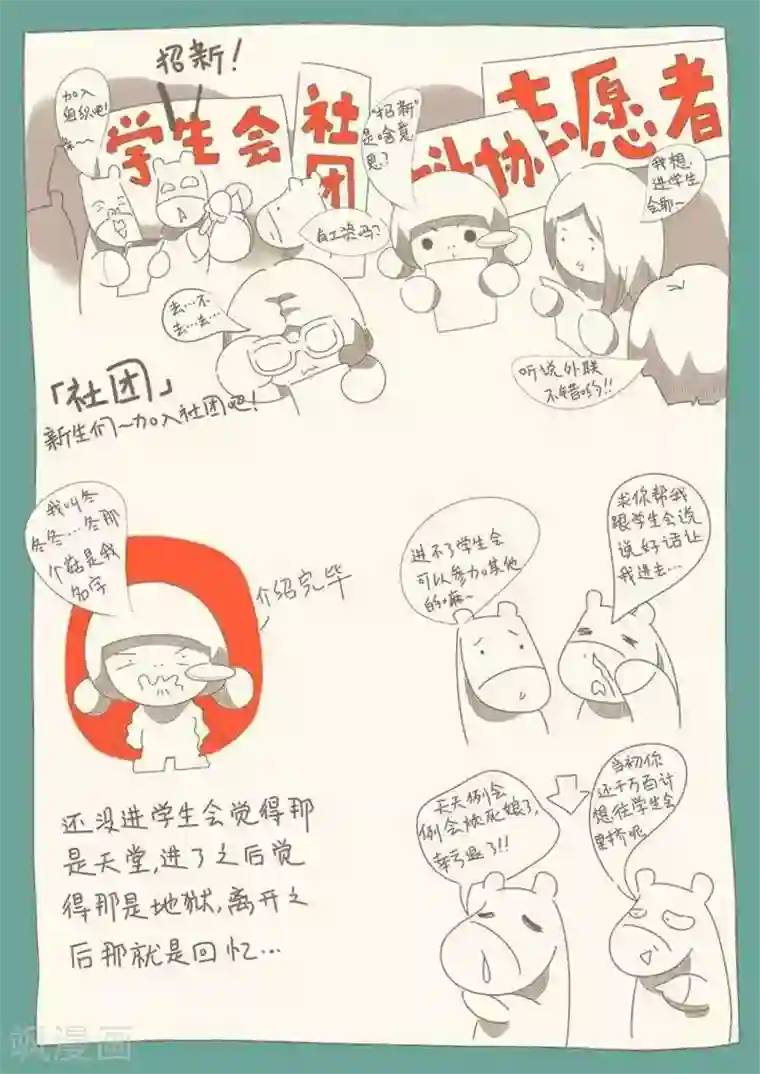 招新!
加入
组织吧!
亲~~
学生会
社
团
"招新"
是啥意
思?
科协
志愿者
我想
进学生
会耶~
有工资吗?
去…不
去…去…
听说外联
不错哟!!
「社团」
新生们~加入社团吧!
我叫冬
冬冬…冬那
个菇是我
名字
介绍完毕
进不了学生会
可以参加其他
的嘛~
求你帮我
跟学生会说
说好话让
我进去…
还没进学生会觉得那
是天堂,进了之后觉
得那是地狱,离开之
后那就是回忆…
天天例会
例会烦死娘了,
幸亏退了!!
当初你
还千方百计
想往学生会
里挤呢
飒漫画